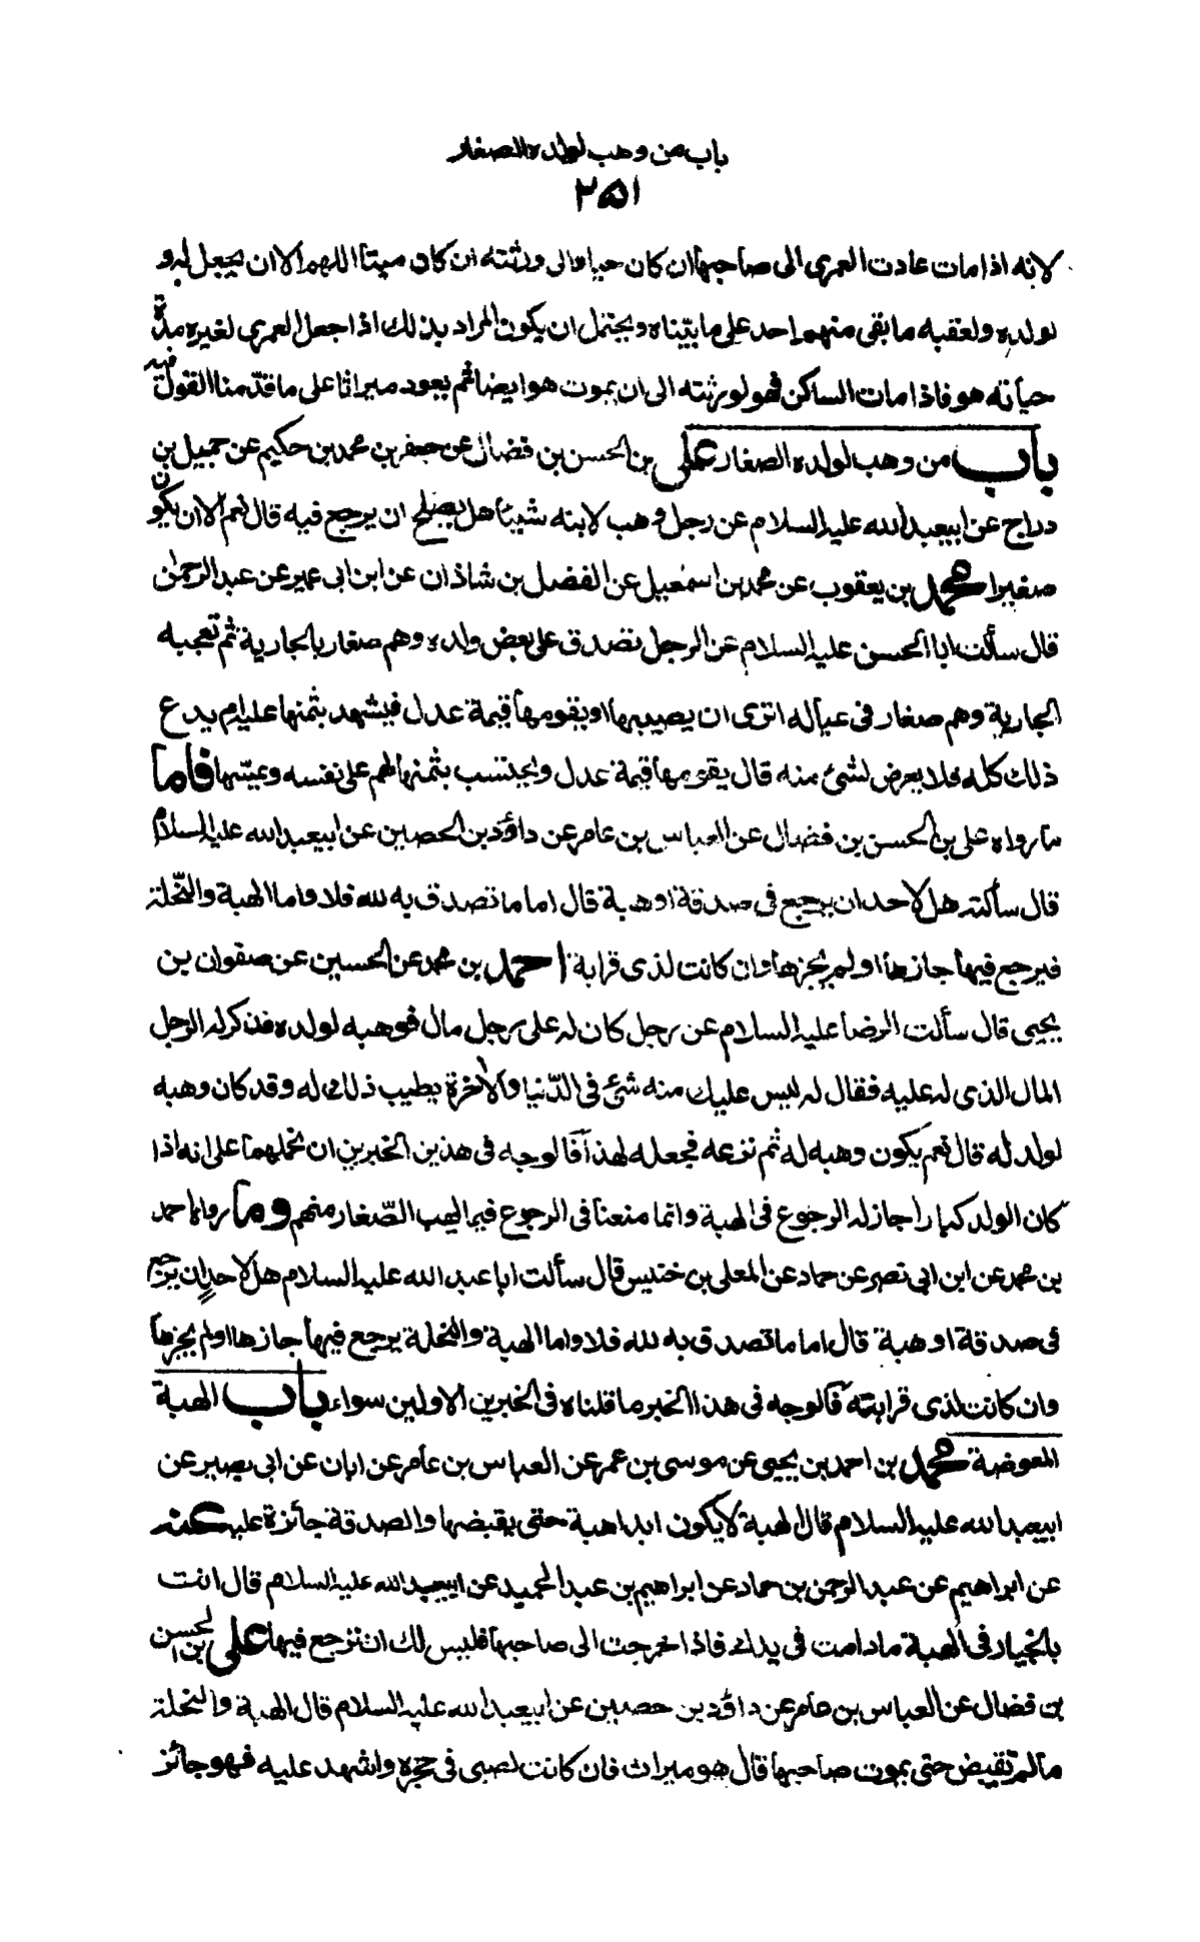 باب من وهب لولده الصغار
۲۵۱
لانه اذا مات عادت العمرى الى صاحبها ان كان حيا والى ورثته ان كان ميتا اللهم الا ان يجعل له و
لولده ولعقبه ما بقى منهم احد على ما بيّناه ويحتمل ان يكون المراد بذلك اذا جعل العمرى لغيره مدة
حياته هو فاذا مات الساكن فهو لورثته الى ان يموت هو ايضا ثم يعود ميراثا على ما قدّمنا القول فيه
باب من وهب لولده الصغار على بن الحسن بن فضال عن جعفر بن محمد بن حكيم عن جميل بن
دراج عن ابيعبد الله عليه السلام عن رجل وهب لابنه شيئا هل يصلح ان يرجع فيه قال نعم الا ان يكون
صغيرا محمد بن يعقوب عن محمد بن اسمعيل عن الفضل بن شاذان عن ابن ابى عمير عن عبد الرحمان
قال سألت ابا الحسن عليه السلام عن الرجل تصدق على بعض ولده وهم صغار بالجارية ثم تعجبه
الجارية وهم صغار فى عياله اترى ان يصيبها او يقومها قيمة عدل فيشهد بثمنها عليه ام يدع
ذلك كله فلا يعرض لشئ منه قال يقومها قيمة عدل ويحتسب بثمنها لهم على نفسه ويمسّها فاما
ما رواه على بن الحسن بن فضال عن العباس بن عامر عن داود بن الحصين عن ابيعبد الله عليه السلام
قال سألته هل لاحد ان يرجع فى صدقة او هبة قال اما ما تصدق به لله فلا واما الهبة والنّحلة
فيرجع فيها حازها او لم يحزها وان كانت لذى قرابة احمد بن محمد عن الحسين عن صفوان بن
يحيى قال سألت الرضا عليه السلام عن رجل كان له على رجل مال فوهبه لولده فذكر له الرجل
المال الذى له عليه فقال له ليس عليك منه شئ فى الدّنيا والاخرة يطيب ذلك له وقد كان وهبه
لولد له قال نعم يكون وهبه له ثم نزعه فجعله لهذا فالوجه فى هذين الخبرين ان نحملهما على انه اذا
كان الولد كبارا جاز له الرجوع فى الهبة وانما منعنا فى الرجوع فيما يهب الصّغار منهم وما رواه احمد
بن محمد عن ابن ابى نصر عن حماد عن المعلى بن خنيس قال سألت ابا عبد الله عليه السلام هل لاحد ان يرجع
فى صدقة او هبة قال اما ما تصدق به لله فلا واما الهبة والنحلة يرجع فيها حازها او لم يحزها
وان كانت لذى قرابته فالوجه فى هذا الخبر ما قلناه فى الخبرين الاولين سواء باب الهبة
المعوضة محمد بن احمد بن يحيى عن موسى بن عمر عن العباس بن عامر عن ابان عن ابى بصير عن
ابيعبد الله عليه السلام قال الهبة لا يكون ابدا هبة حتى يقبضها والصدقة جائزة عليه عنه
عن ابراهيم عن عبد الرحمن بن حماد عن ابراهيم بن عبد الحميد عن ابيعبد الله عليه السلام قال انت
بالخيار فى الهبة ما دامت فى يدك فاذا خرجت الى صاحبها فليس لك ان ترجع فيها على بن الحسن
بن فضال عن العباس بن عامر عن داود بن حصين عن ابيعبد الله عليه السلام قال الهبة والنحلة
ما لم تقبض حتى يموت صاحبها قال هو ميراث فان كانت لصبى فى حجره واشهد عليه فهو جائز